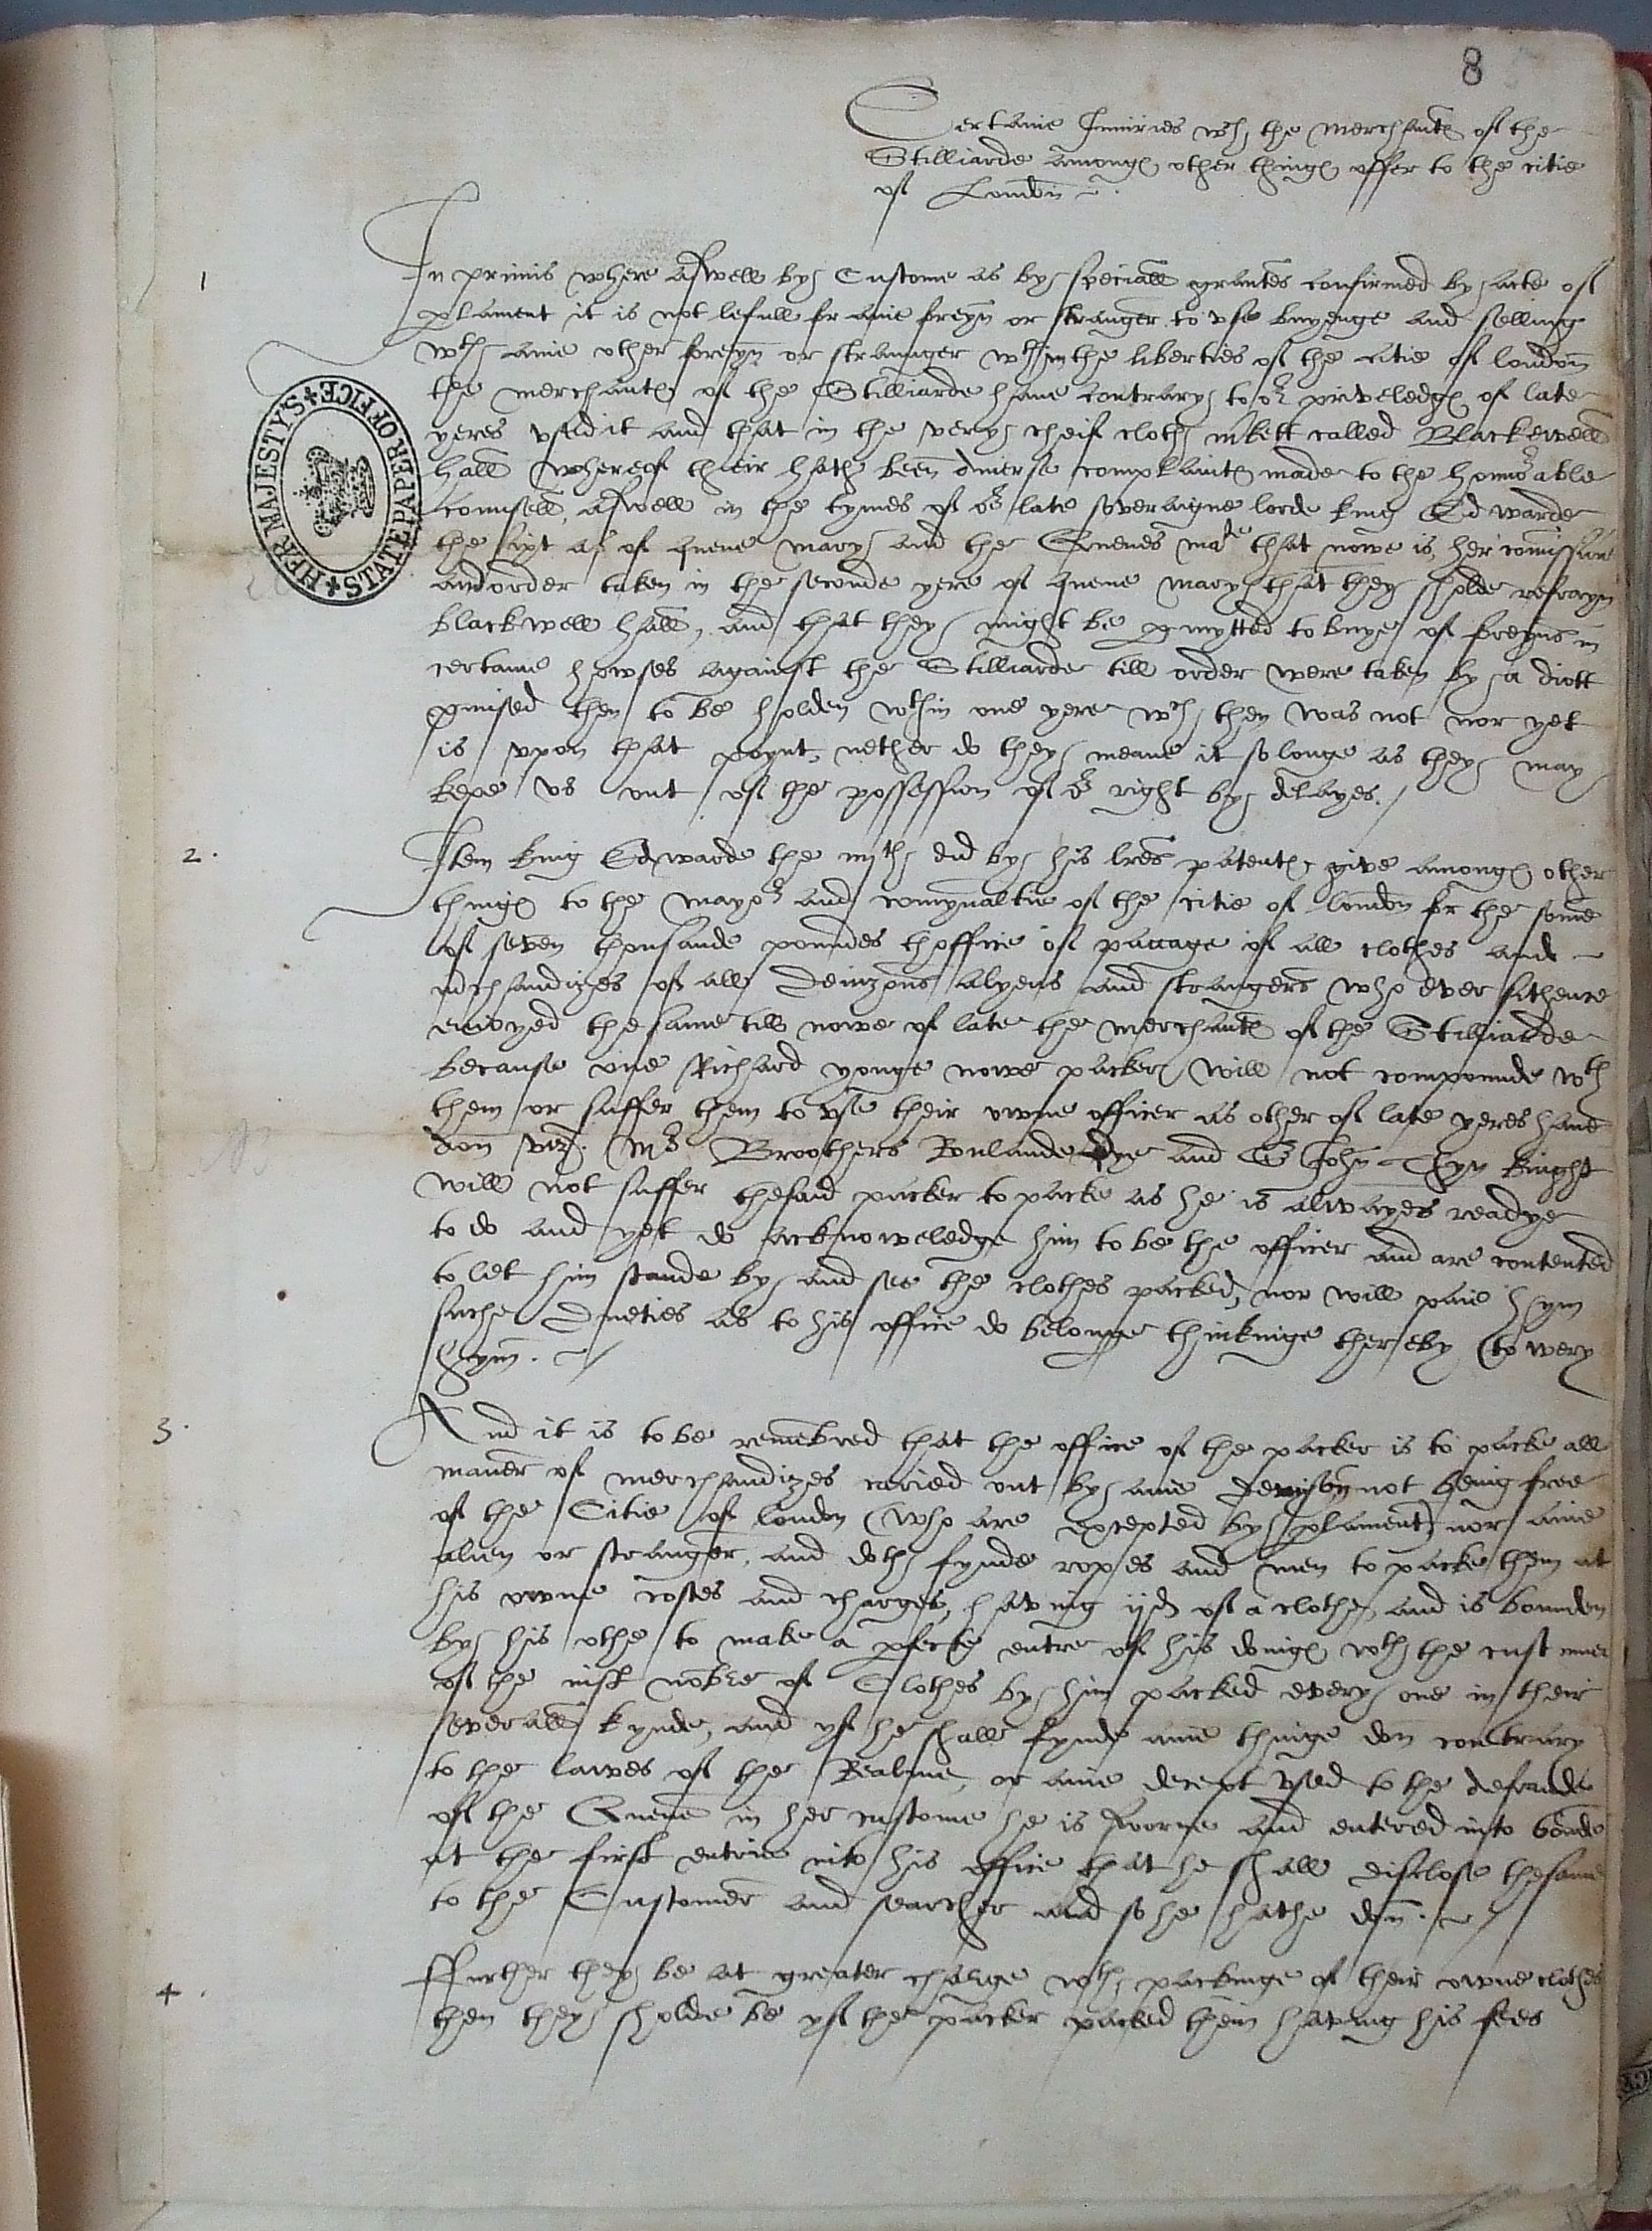 8
Certaine Iniuries wch the merchauntes of the
Stilliarde amonges other thinges offer to the citie
of London
1
In primis where aswell by Custome as by speciall grauntes confirmed by acte of
plament it is not lefull for anie foreyn or stranger to vse buyenge and selling
wth anie other foreyn or straunger wthin the liberties of the citie of london
the merchantes of the Stilliarde haue contrary to or priveledges of late
yeres vsed it and that in the very cheif cloth mkett called Blackewell
hall whereof their hath been diuerse complaintes made to the honorable
counsell, aswell in the tymes of or late soveraigne lorde king Edwarde
the sixt as of quene mary and the Quenes matie that nowe is, her comission
and order taken in the seconde yere of quene mary that they sholde refrayn
blackwell hall, and that they might be pmytted to buye of foreyns in
certaine howses against the Stilliarde till order were taken by a diett
pmised then to be holden wthin one yere wch then was not nor yet
is vpon that poynt, nether do they meane it so longe as they may
kepe vs out of the possession of or right by delayes.
2.
Item king Edwarde the iiijth did by his lres patentes give amonges other
thinges to the mayor and comynaltie of the citie of london for the some
of seven thousande poundes thoffice of paccage of all clothes and
mchandizes of all Deinzons alyens and strangers who ever sithence
enioyed the same till nowe of late the merchantes of the Stilliarde
because one Richard yonge nowe packer will not compounde wth
them or suffer them to vse their owne officer as other of late yeres haue
don viz. Mr Broothers Roulande dye and Sr John Thyn knight
will not suffer thesaid packer to packe as he is alwayes readye
to do and yet do acknoweledge him to be the officer and are contented
to let him stande by and see the clothes packed, nor will paie hym
suche Dueties as to his office do belonge thinkinge thereby to wery
hym.
3.
And it is to be remembred that the office of the packer is to packe all
maner of merchandizes caried out by anie denison not being free
of the Citie of london (who are excepted by plament) nor anie
alien or stranger, and doth fynde ropes and men to packe them at
his owne costes and charges, having ijd of a clothe, and is bounden
by his othe to make a pfecte entre of his doinges wth the customer
of the iust nobre of Clothes by him packed every one in their
severall kynde, and yf he shall fynde anie thinge don contrary
to the lawes of the Realme, or anie deceipt vsed to the defraude
of the Quene in her custome he is sworne and entered into bonde
at the first entrie into his office that he shall disclose thesame
to the Customer and searcher and so he hathe don.
4.
ffurther they be at greater charge wth packinge of their owne clothes
then they sholde be yf the packer packed them having his fees
HER MAJESTY'S STATE PAPER OFFICE